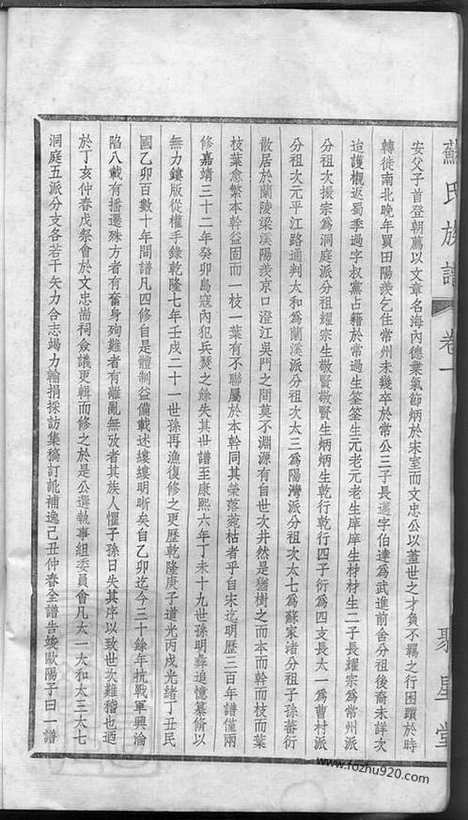 蘇氏族譜 卷一 聚星堂
安父子首登朝薦以文章名海內德業氣節炳於宋室而文忠公以蓋世之才負不羈之行困躓於時
轉徙南北晚年買田陽羨乞住常州未幾卒於常公三子長邁字伯達爲武進前舍分祖後裔未詳次
迨護櫬返蜀季過字叔黨占籍於常過生筌筌生元老元老生庠庠生材材生二子長耀宗爲常州派
分祖次振宗爲洞庭派分祖耀宗生敬賢敬賢生炳炳生乾行乾行四子衍爲四支長太一爲曹村派
分祖次元平江路通判太和爲蘭溪派分祖次太三爲陽灣派分祖次太七爲蘇家渚分祖子孫蕃衍
散居於蘭陵梁溪陽羨京口澄江吳門之間莫不淵源有自世次井然是猶樹之而本而幹而枝而葉
枝葉愈繁本幹益固而一枝一葉有不聯屬於本幹同其榮落菀枯者乎自宋迄明歷三百年譜僅兩
修嘉靖三十二年癸卯島寇內犯兵燹之餘失其世譜至康熙六年丁未十九世孫明彝追憶纂脩以
無力鏤版從權手錄乾隆七年壬戌二十一世孫再漁復修之更歷乾隆庚子道光丙戌光緒丁丑民
國乙卯百數十年間譜凡四修自是體制益備載述縷縷明晰矣自乙卯迄今三十餘年抗戰軍興淪
陷八載有播遷殊方者有奮身殉難者有離亂無攷者其族人懼子孫日失其序以致世次難稽也迺
於丁亥仲春戊祭會於文忠崇祠僉議更輯而修之於是公選執事組委員會凡太一太和太三太七
洞庭五派分支各若干矢力合志竭力輸捐採訪集稿訂訛補逸己丑仲春全譜告竣歐陽子曰一譜
www.fozhu920.com